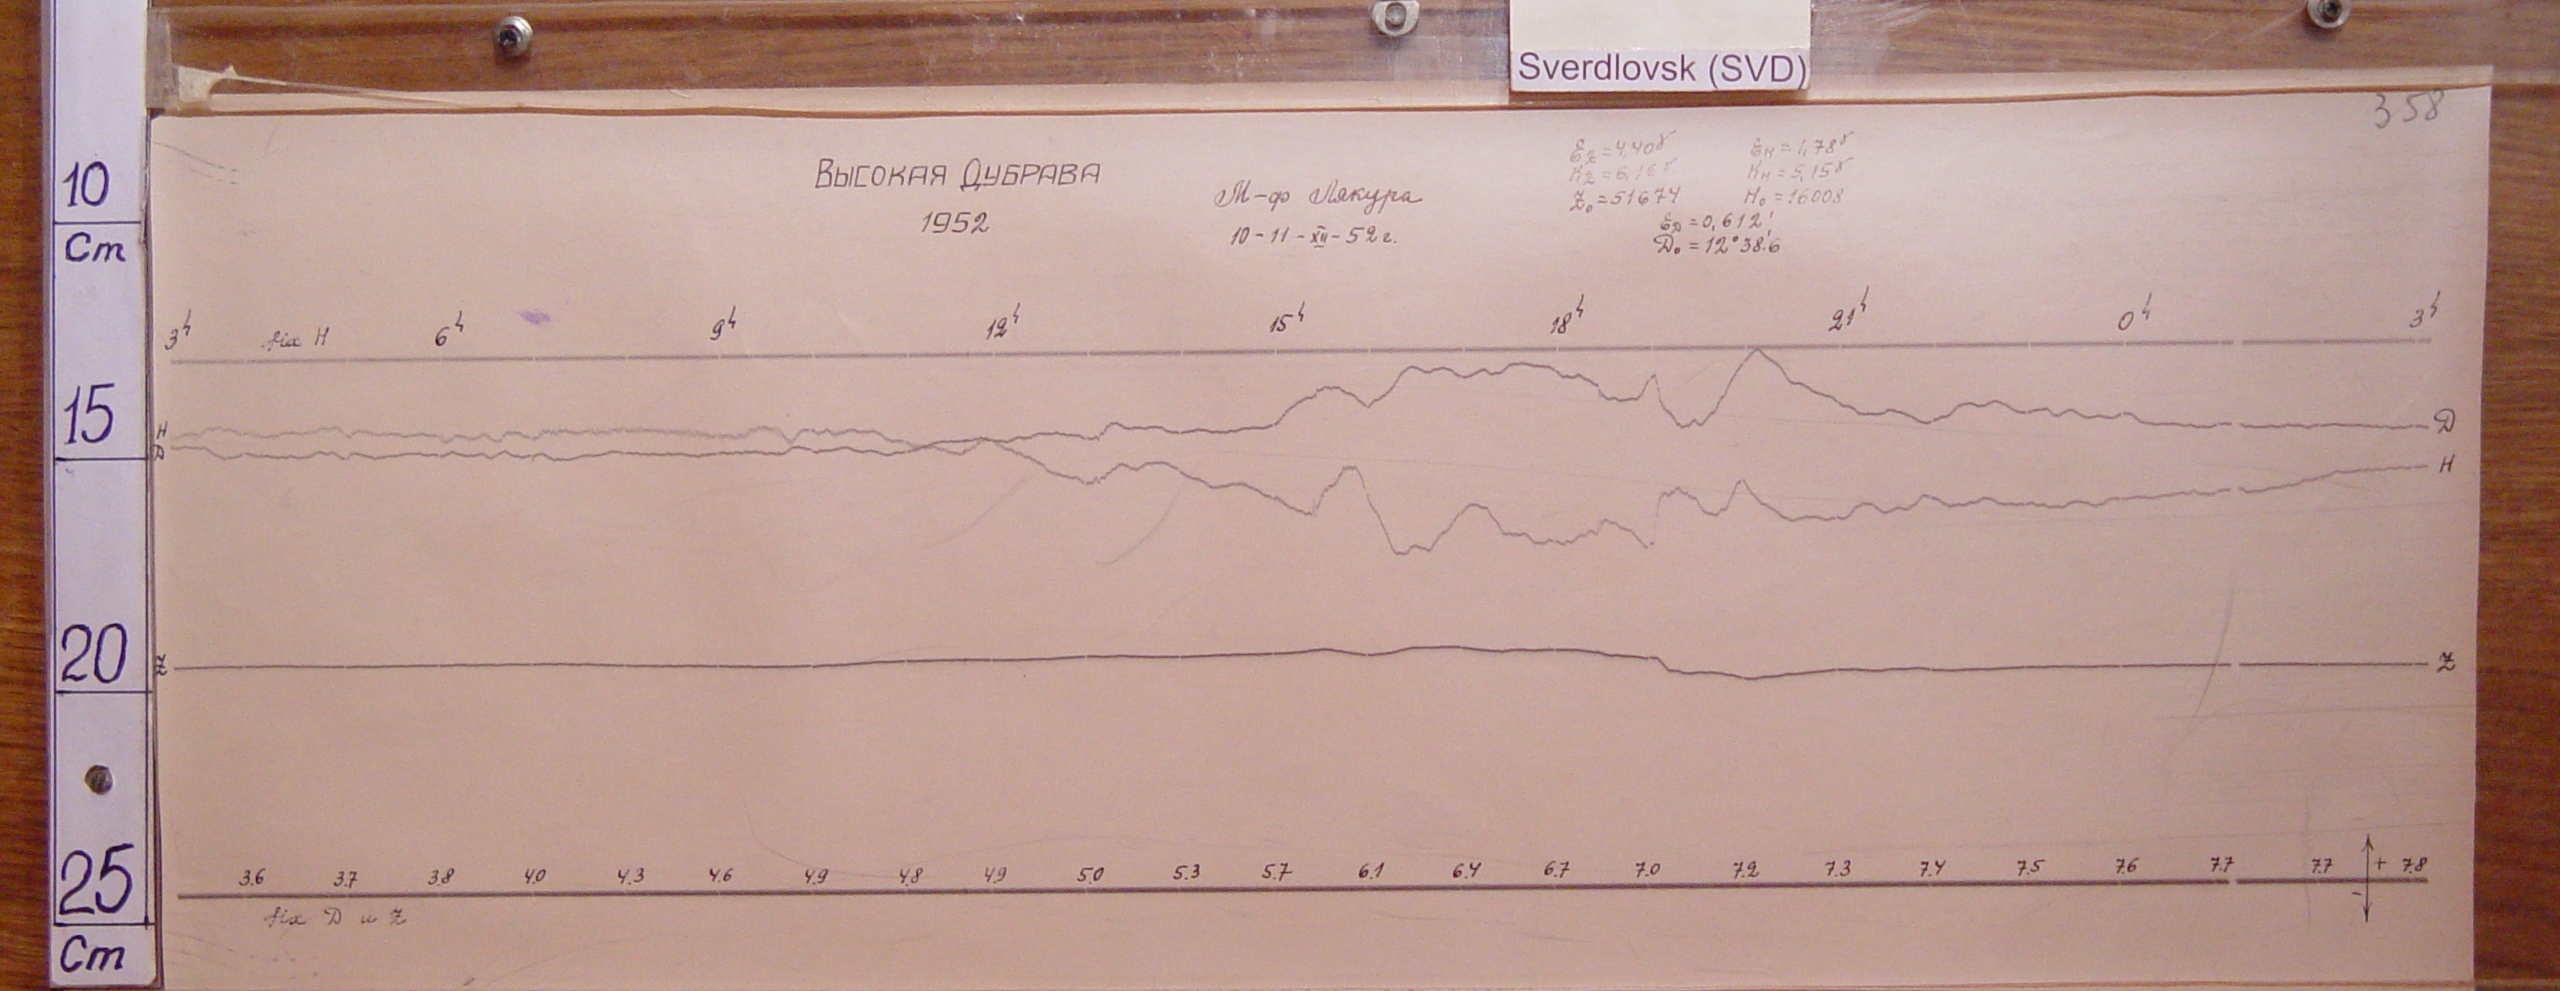 Sverdlovsk (SVD)
358
10
Cm
15
20
25
Cm
ВЫСОКАЯ ДУБРАВА
1952
М-ф Лякура
10-11-XII-52 г.
εz=4,40γ εH=1,78γ
Kz=6,16γ KH=5,15γ
Z₀=51674 H₀=16008
εD=0,612'
D₀=12°38'.6
3ʰ fix H 6ʰ 9ʰ 12ʰ 15ʰ 18ʰ 21ʰ 0ʰ 3ʰ
H D
D H
Z Z
3.6 3.7 3.8 4.0 4.3 4.6 4.9 4.8 4.9 5.0 5.3 5.7 6.1 6.4 6.7 7.0 7.2 7.3 7.4 7.5 7.6 7.7 7.7 + 7.8
-
fix D и Z